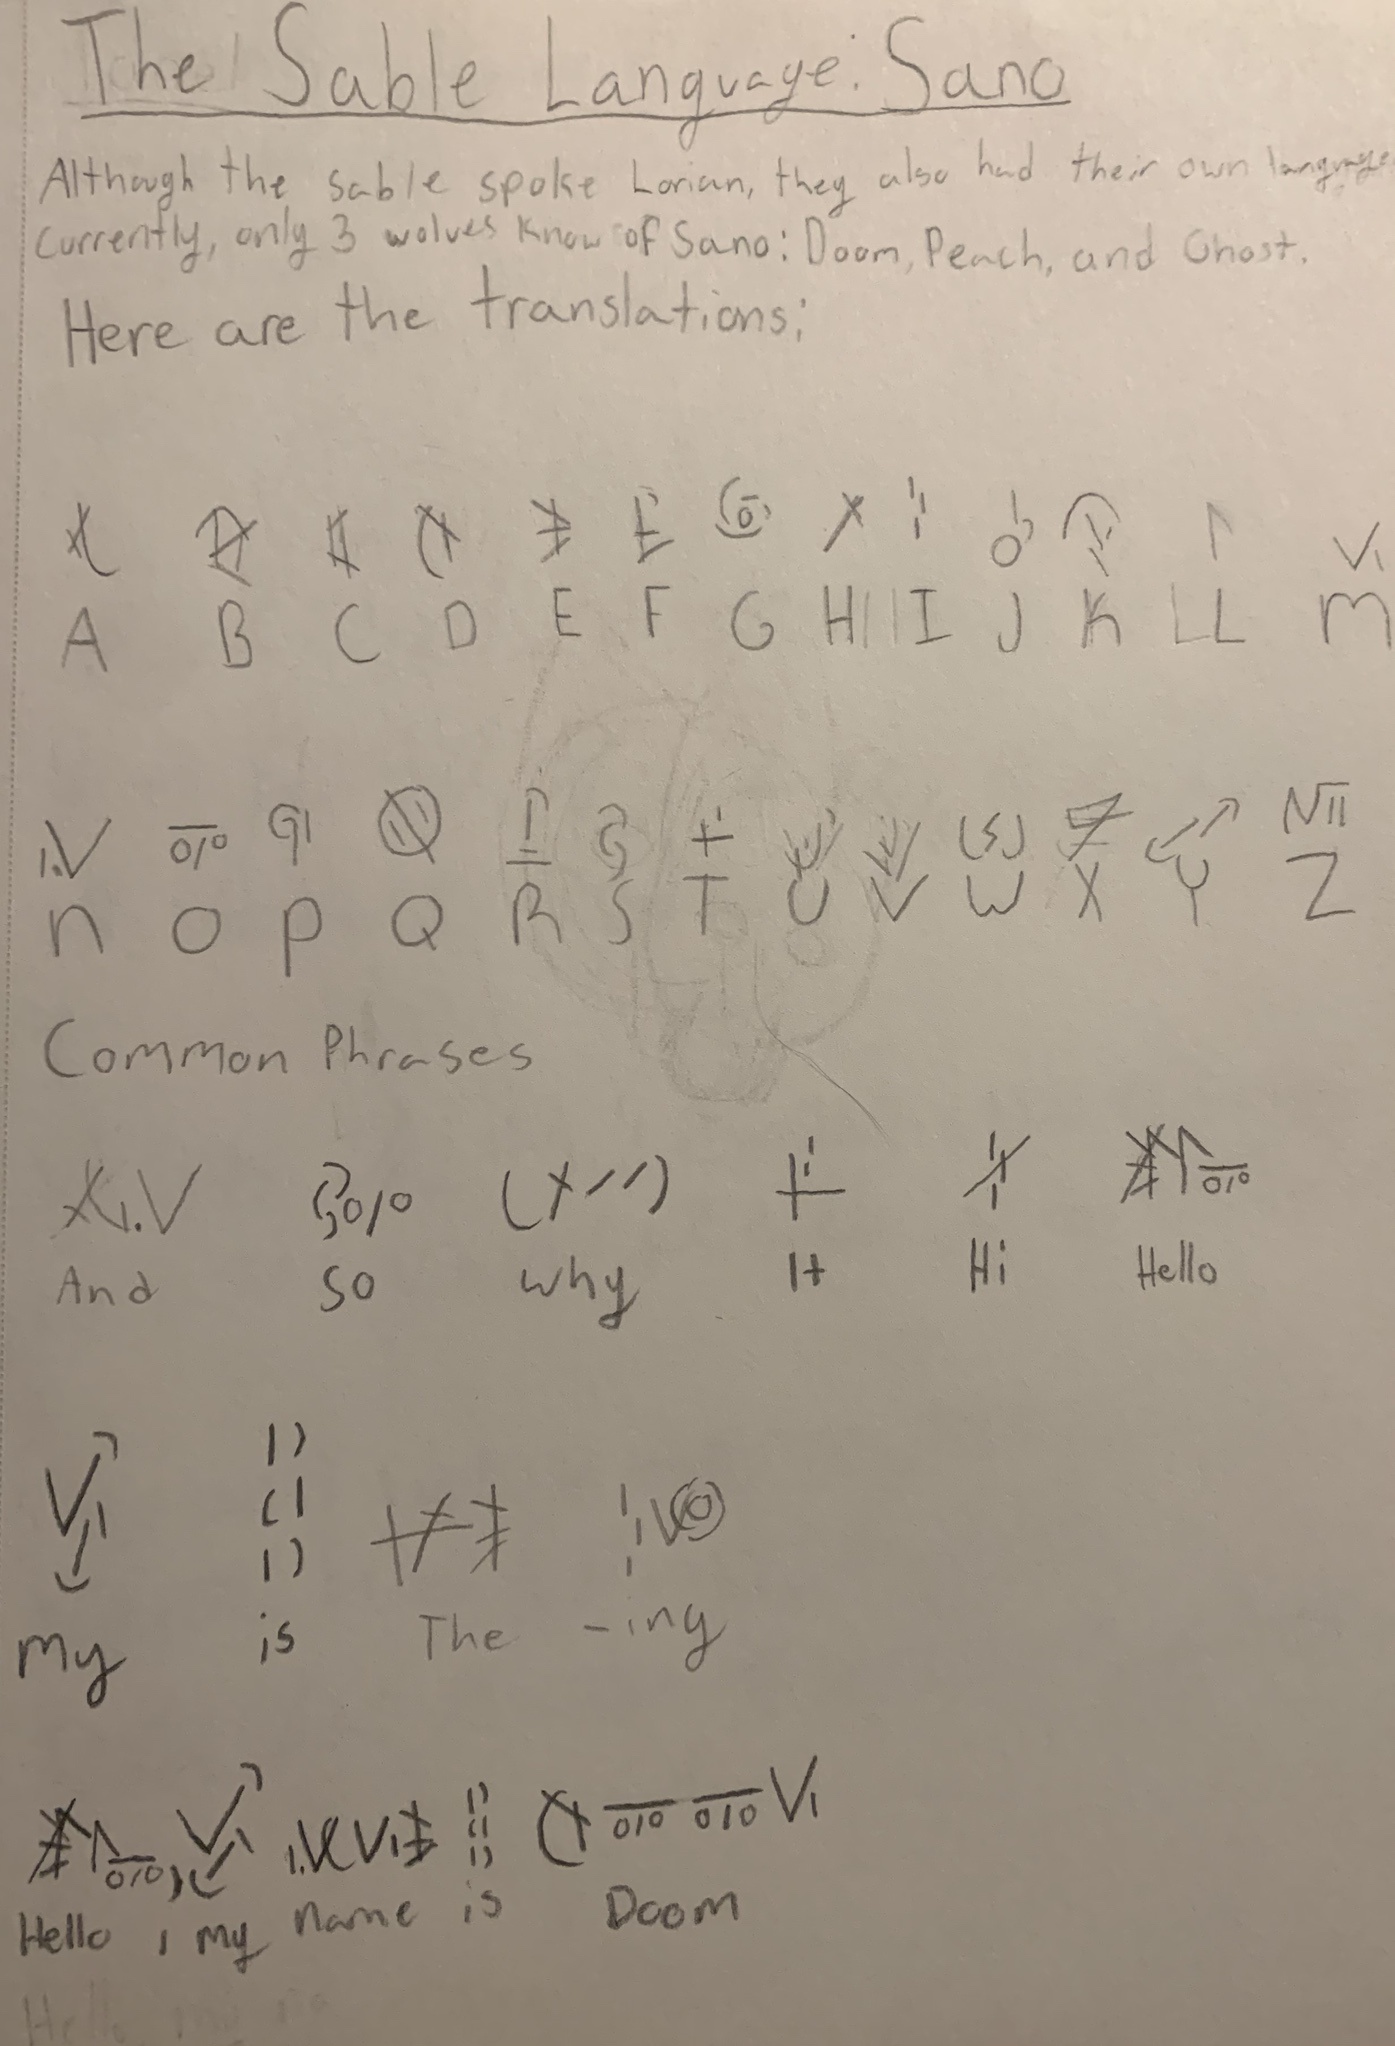 The Sable Language: Sano
Although the sable spoke Lorian, they also had their own language
Currently, only 3 wolves know of Sano: Doom, Peach, and Ghost.
Here are the translations:
A B C D E F G H I J K L M
n O P Q R S T U V W X Y Z
Common Phrases
And so why It Hi Hello
my is The -ing
Hello, my name is Doom